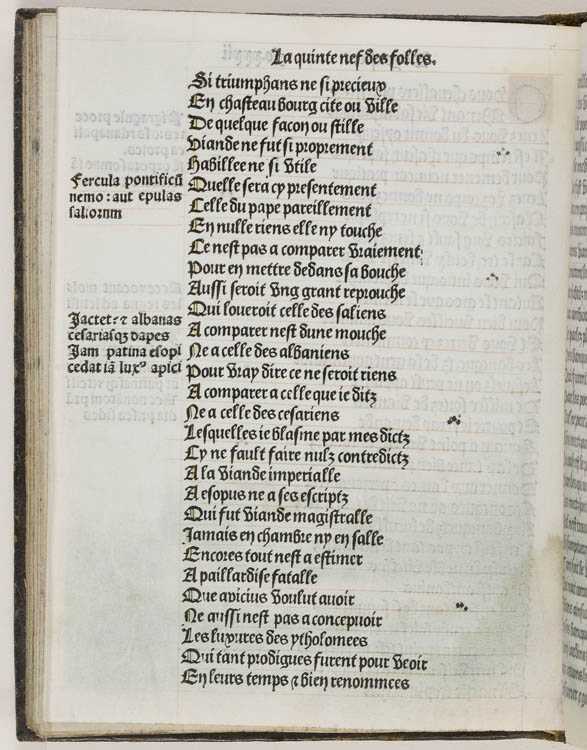 La quinte nef des folles.
Si triumphans ne si precieux
En chasteau bourg cite ou ville
De quelque facon ou stille
Viande ne fut si proprement
Habillee ne si vtile
Fercula pontificũ
nemo: aut epulas
saliorum
Quelle sera cy presentement
Celle du pape pareillement
En nulle riens elle ny touche
Ce nest pas a comparer vraiement
Pour en mettre dedans sa bouche
Aussi seroit vng grant reprouche
Qui loueroit celle des saliens
Jactet: ⁊ albanas
cesariasqz dapes
Jam patina esopi
cedat iã luxꝰ apici
A comparer nest dune mouche
Ne a celle des albaniens
Pour vray dire ce ne seroit riens
A comparer a celle que ie ditz
Ne a celle des cesariens
Lesquelles ie blasme par mes dictz
Cy ne fault faire nulz contredictz
A la viande imperialle
A esopus ne a ses escriptz
Qui fut viande magistralle
Jamais en chambre ny en salle
Encores tout nest a estimer
A paillardise fatalle
Que apicius voulut auoir
Ne aussi nest pas a concepuoir
Les luxures des ptholomees
Qui tant prodigues furent pour veoir
En leurs temps ⁊ bien renommees